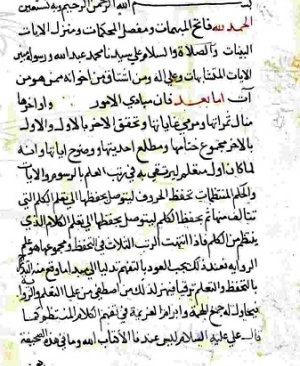 بسم الله الرحمن الرحيم وبه نستعين
الحمد لله فاتح المبهمات ومفصل المحكمات ومنزل الايات
البينات والصلاة والسلام على سيدنا محمد عبد الله ورسوله
الايات المتشابهات وعلى اله ومن اشتاق من اخوانه ممن هو من
اما بعد فان مبادي الامور واواخرها
منال ثمراتها ومرمى غاياتها وتحقق الاخر بالاول والاول
بالاخر مجموع ختامها ومطلع احديتها ووضوح اياتها وانه
لما كان اول معلم لمرتقى به في رتب العلم بالرسوم والايات
والحكم المنتظمات تحفظ الحروف ليتوصل بحفظها الى تعلم الكلم التي
تتالف منها ثم تحفظ الكلم ليتوصل بحفظها الى تعلم الكلام الذي
ينتظم من الكلم فاذا انتهت الرتب الثلاث في التحفظ ومجموعها هو علم
الرواية فعند ذلك يجب العود بالتفهم تدليا الى مبدا ما وقع منه البدء
بالتحفظ والتعلم ترقيا فيتم لذلك من اصطفى من عليا التعلم
بحاوله جمع الهمة وابرام العزيمة في تفهم الكلام المنتظم
قال علي عليه السلام ليس عندنا الا كتاب الله وما في هذه الصحيفة